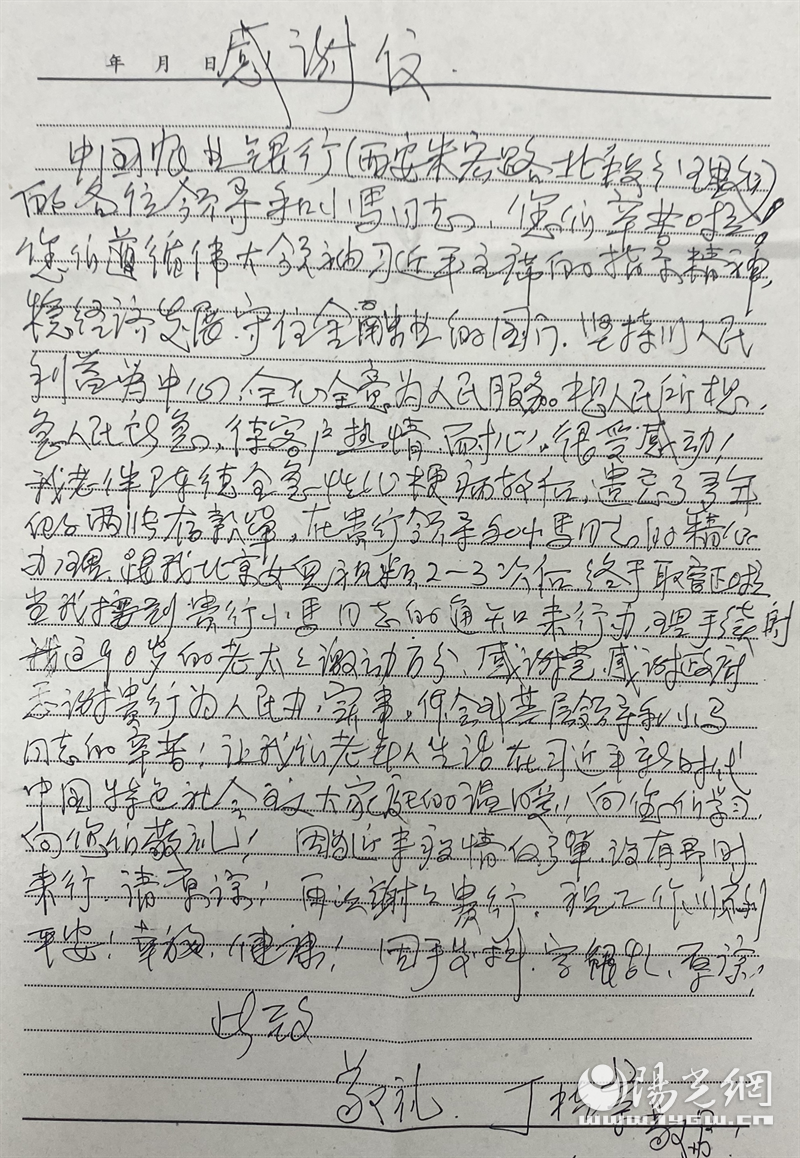 年 月 日 感谢信.
中国农业银行(西安朱宏路北段分理处)
的各位领导和小马同志、您们辛苦啦!
您们遵循伟大领袖习近平主席的指示精神,
稳经济发展.守住金融业的国门.坚持以人民
利益为中心,全心全意为人民服务。想人民所想、
急人民所急、待客户热情、耐心。很受感动!
我老伴陈德全急性心梗病故后,遗忘了多年
的两张存款单,在贵行领导和小马同志的精心
办理.跟我北京女儿视频2—3次后终于取证啦
当我接到贵行小马同志的通知来行办理手续时
我这90岁的老太太激动万分、感谢党、感谢政府
感谢贵行为人民办实事,你全心基层领导和小马
同志的辛苦!让我们老年人生活在习近平新时代
中国特色社会主义大家庭的温暖!向您们学习
向您们敬礼! 因近来疫情 没有即时
来行、请原谅! 再次谢谢贵行.祝工作顺利
平安!幸福、健康! 因手发抖.字 乱、原谅!
此致
敬礼. 丁
陽光網
www.iygw.cn